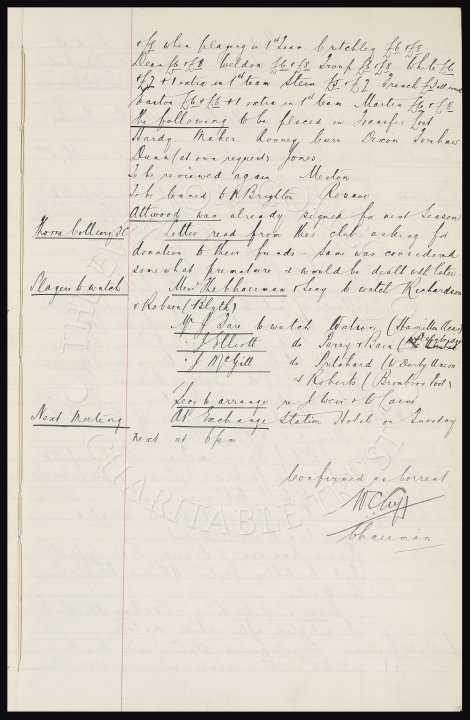 & £9 when playing in 1st Team. Critchley £6 & £8
Dean £6 & £8 Weldon £6 & £8 Troup £6 & £8 White £6
& £7 + 1 extra in 1st team Stein £5 & £7 French £5 all round
Easton £6 & £6 + 1 extra in 1st team Martin £6 & £8
The following to be placed on Transfer List
Hardy Maher Rooney Curr Dixon
Dunn (at own request) Jones
To be reviewed again Meston
To be loaned to N Brighton
Attwood was already signed for next Season
Thorne Colliery FC Letter read from this club asking for
donation to their funds - Same was considered
somewhat premature & would be dealt with later
Players to watch The Chairman & Secy to watch Richardson
& Robson (Blyth)
Mr to watch Watson (Hamilton Acas)
" do Parry & Bain
" J McGill do Pritchard (W Derby Union
& Roberts (Bromboro Pool)
Secy to arrange re J Weir & W
Next Meeting At Exchange Station Hotel on Tuesday
next at 6 pm
Confirmed as correct
W C Cuff
Chairman
THE EVERTON
CHARITABLE TRUST